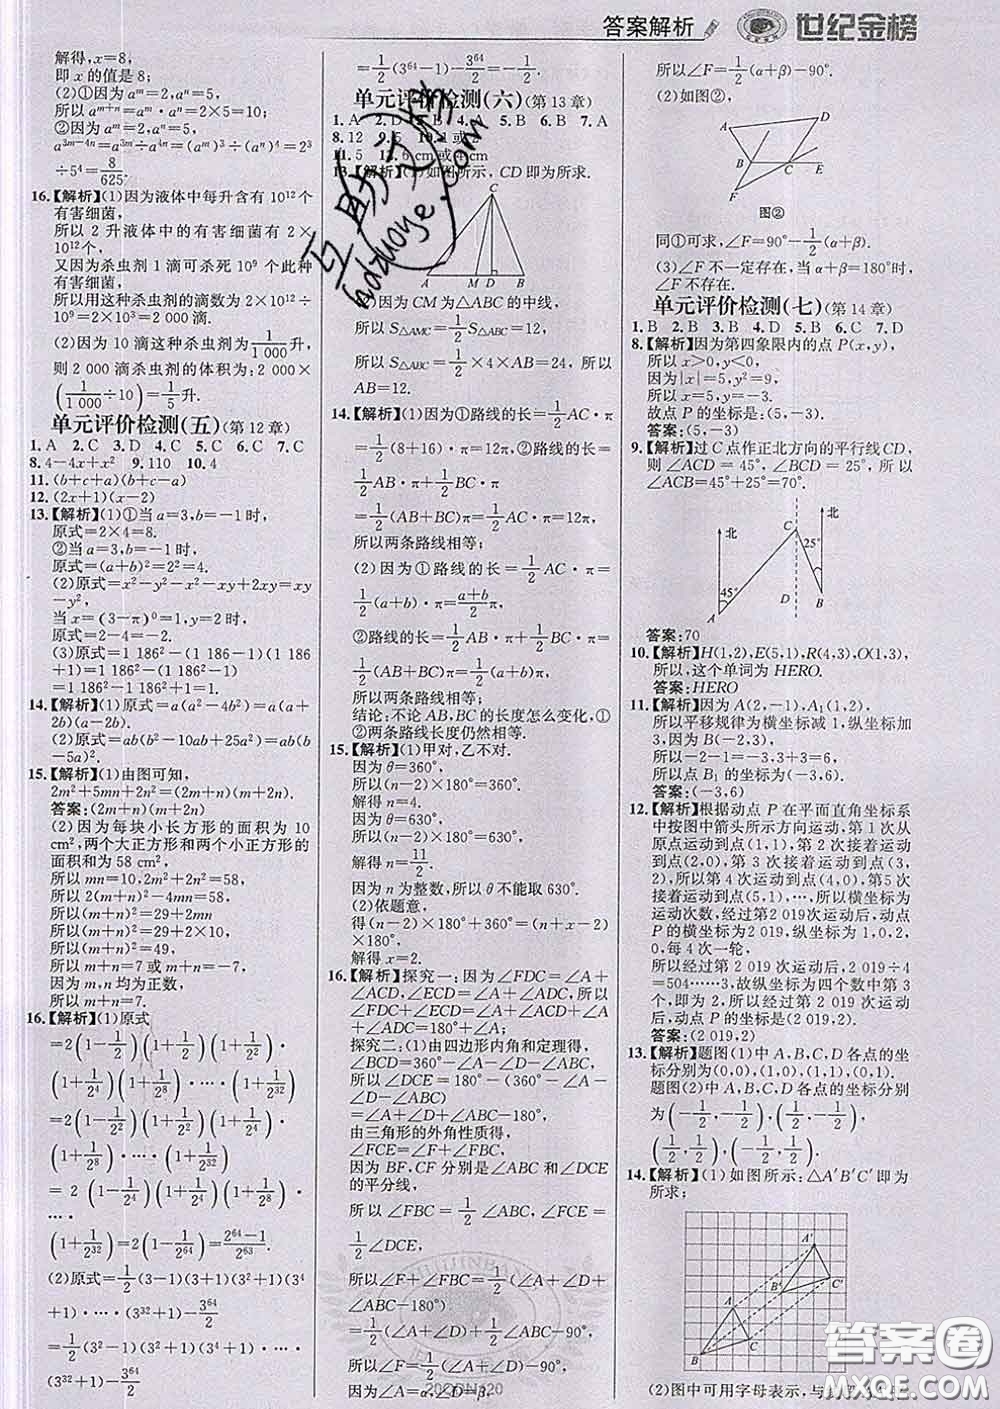 答案解析 世纪金榜
解得,x=8,
即x的值是8;
(2)①因为aᵐ=2,aⁿ=5,
所以aᵐ⁺ⁿ=aᵐ·aⁿ=2×5=10;
②因为aᵐ=2,aⁿ=5,
a³ᵐ⁻⁴ⁿ=a³ᵐ÷a⁴ⁿ=(aᵐ)³÷(aⁿ)⁴=2³
÷5⁴=8/625.
16.【解析】(1)因为液体中每升含有10¹²个
有害细菌,
所以2升液体中的有害细菌有2×
10¹²个,
又因为杀虫剂1滴可杀死10⁹个此种
有害细菌,
所以用这种杀虫剂的滴数为2×10¹²
÷10⁹=2×10³=2 000滴.
(2)因为10滴这种杀虫剂为1/1 000升,
则2 000滴杀虫剂的体积为:2 000
×(1/1 000÷10)=1/5升.
单元评价检测(五)(第12章)
1.A 2.C 3.D 4.C 5.C 6.C 7.C
8.4-4x+x² 9.110 10.4
11.(b+c+a)(b+c-a)
12.(2x+1)(x-2)
13.【解析】(1)①当a=3,b=-1时,
原式=2×4=8.
②当a=3,b=-1时,
原式=(a+b)²=2²=4.
(2)原式=x²-y²-x²-xy+2xy=xy
-y²,
当x=(3-π)⁰=1,y=2时,
原式=2-4=-2.
(3)原式=1 186²-(1 186-1)(1 186
+1)=1 186²-(1 186²-1)
=1 186²-1 186²+1=1.
14.【解析】(1)原式=a(a²-4b²)=a(a+
2b)(a-2b).
(2)原式=ab(b²-10ab+25a²)=ab(b
-5a)².
15.【解析】(1)由图可知,
2m²+5mn+2n²=(2m+n)(m+2n).
答案:(2m+n)(m+2n)
(2)因为每块小长方形的面积为10
cm²,两个大正方形和两个小正方形的
面积和为58 cm²,
所以mn=10,2m²+2n²=58,
所以2(m+n)²-4mn=58,
所以(m+n)²=29+2mn
所以(m+n)²=29+2×10,
所以(m+n)²=49,
所以m+n=7或m+n=-7,
因为m,n均为正数,
所以m+n=7.
16.【解析】(1)原式
=2(1-1/2)(1+1/2)(1+1/2²)·
(1+1/2⁴)(1+1/2⁸)·…·(1+1/2³²)
=2(1-1/2²)(1+1/2²)(1+1/2⁴)·
(1+1/2⁸)·…·(1+1/2³²)
=2(1-1/2⁴)(1+1/2⁴)(1+1/2⁸)·
…·
(1+1/2³²)=2(1-1/2⁶⁴)=(2⁶⁴-1)/2⁶³.
(2)原式=1/2(3-1)(3+1)(3²+1)(3⁴
+1)·…·(3³²+1)-3⁶⁴/2
=1/2(3²-1)(3²+1)(3⁴+1)·…·
(3³²+1)-3⁶⁴/2
=1/2(3⁶⁴-1)-3⁶⁴/2=-1/2.
单元评价检测(六)(第13章)
1.A 2.D 3.B 4.A 5.B 6.B 7.A
8.12 9.5 10.1或2
11.5 12.6 cm或4 cm
13.【解析】(1)如图所示,CD即为所求.
C
A M D B
(2)因为CM为△ABC的中线,
所以S△AMC=1/2S△ABC=12,
所以S△ABC=1/2×4×AB=24,所以
AB=12.
14.【解析】(1)因为①路线的长=1/2AC·π
=1/2(8+16)·π=12π;②路线的长=
1/2AB·π+1/2BC·π
=1/2(AB+BC)π=1/2AC·π=12π,
所以两条路线相等;
(2)因为①路线的长=1/2AC·π=
1/2(a+b)·π=(a+b)/2π,
②路线的长=1/2AB·π+1/2BC·π=
1/2(AB+BC)π=1/2(a+b)·π,
所以两条路线相等;
结论:不论AB,BC的长度怎么变化,①
②两条路线长度仍然相等.
15.【解析】(1)甲对,乙不对.
因为θ=360°,
所以(n-2)×180°=360°,
解得n=4.
因为θ=630°,
所以(n-2)×180°=630°,
解得n=11/2.
因为n为整数,所以θ不能取630°.
(2)依题意,
得(n-2)×180°+360°=(n+x-2)
×180°,
解得x=2.
16.【解析】探究一:因为∠FDC=∠A+
∠ACD,∠ECD=∠A+∠ADC,所以
∠FDC+∠ECD=∠A+∠ACD+
∠A+∠ADC=180°+∠A;
探究二:(1)由四边形内角和定理得,
∠BCD=360°-∠A-∠D-∠ABC,
所以∠DCE=180°-(360°-∠A-
∠D-∠ABC)=∠A+∠D+∠ABC-180°,
由三角形的外角性质得,
∠FCE=∠F+∠FBC,
因为BF,CF分别是∠ABC和∠DCE
的平分线,
所以∠FBC=1/2∠ABC,∠FCE=1/2
∠DCE,
所以∠F+∠FBC=1/2(∠A+∠D+
∠ABC-180°)
=1/2(∠A+∠D)+1/2∠ABC-90°,
所以∠F=1/2(∠A+∠D)-90°,
因为∠A=α,∠D=β,
所以∠F=1/2(α+β)-90°.
(2)如图②,
A D
B C E
F
图②
同①可求,∠F=90°-1/2(α+β).
(3)∠F不一定存在,当α+β=180°时,
∠F不存在.
单元评价检测(七)(第14章)
1.B 2.B 3.B 4.D 5.B 6.C 7.D
8.【解析】因为第四象限内的点P(x,y),
所以x>0,y<0,
因为|x|=5,y²=9,
所以x=5,y=-3.
故点P的坐标是:(5,-3).
答案:(5,-3)
9.【解析】过C点作正北方向的平行线CD,
则∠ACD=45°,∠BCD=25°,所以
∠ACB=45°+25°=70°.
北 北
C
25°
45°
A B
D
答案:70
10.【解析】H(1,2),E(5,1),R(4,3),O(1,3),
所以,这个单词为HERO.
答案:HERO
11.【解析】因为A(2,-1),A₁(1,2),
所以平移规律为横坐标减1,纵坐标加
3,因为B(-2,3),
所以-2-1=-3,3+3=6,
所以点B₁的坐标为(-3,6).
答案:(-3,6)
12.【解析】根据动点P在平面直角坐标系
中按图中箭头所示方向运动,第1次从
原点运动到点(1,1),第2次接着运动
到点(2,0),第3次接着运动到点(3,
2),所以第4次运动到点(4,0),第5次
接着运动到点(5,1),…,所以横坐标为
运动次数,经过第2 019次运动后,动点
P的横坐标为2 019,纵坐标为1,0,2,
0,每4次一轮,
所以经过第2 019次运动后,2 019÷4
=504……3,故纵坐标为四个数中第3
个,即为2,所以经过第2 019次运动
后,动点P的坐标是(2 019,2).
答案:(2 019,2)
13.【解析】题图(1)中A,B,C,D各点的坐
标分别为(0,0),(1,0),(1,1),(0,1).
题图(2)中A,B,C,D各点的坐标分别
为(-1/2,-1/2),(1/2,-1/2),
(1/2,1/2),(-1/2,1/2).
14.【解析】(1)如图所示:△A′B′C′即为
所求;
A′
B′ C′
A
B C
(2)图中可用字母表示,与
答案圈
MXQE.COM